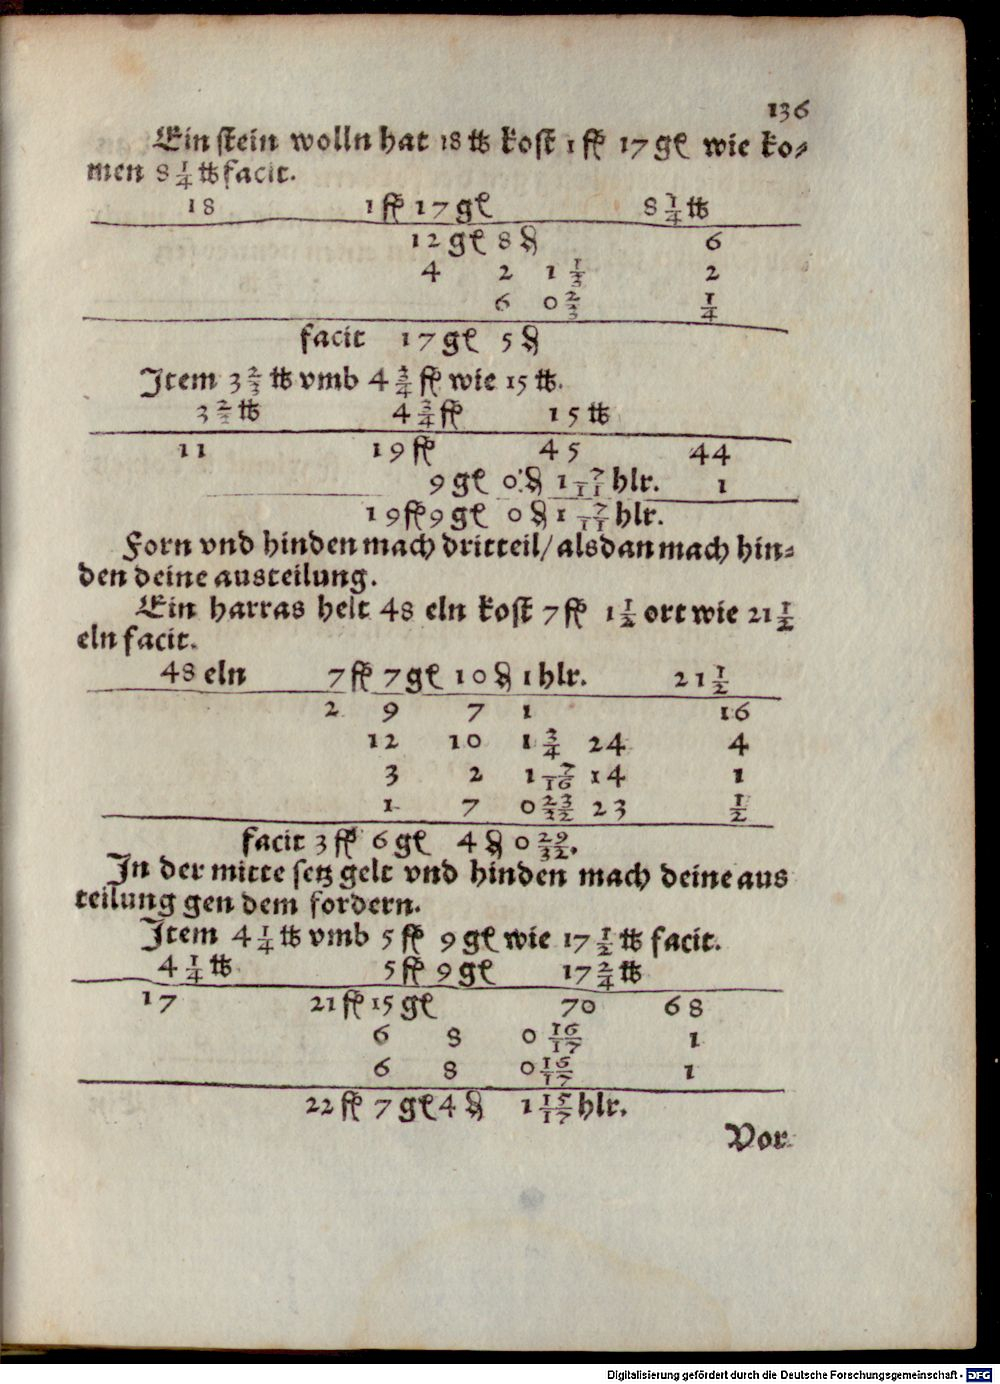 136
Ein stein wolln hat 18 ℔ kost 1 fl 17 gℓ wie ko⸗
men 8 1/4 ℔ facit.
18 1 fl 17 gℓ 8 1/4 ℔
12 gℓ 8 ₰ 6
4 2 1 1/3 2
6 0 2/3 1/4
facit 17 gℓ 5 ₰
Item 3 2/3 ℔ vmb 4 3/4 fl wie 15 ℔.
3 2/3 ℔ 4 3/4 fl 15 ℔
11 19 fl 45 44
9 gℓ 0 ₰ 1 7/11 hlr. 1
19 fl 9 gℓ 0 ₰ 1 7/11 hlr.
Forn vnd hinden mach dritteil/ alsdan mach hin⸗
den deine austeilung.
Ein harras helt 48 eln kost 7 fl 1 1/2 ort wie 21 1/2
eln facit.
48 eln 7 fl 7 gℓ 10 ₰ 1 hlr. 21 1/2
2 9 7 1 16
12 10 1 3/4 24 4
3 2 1 7/16 14 1
1 7 0 23/32 23 1/2
facit 3 fl 6 gℓ 4 ₰ 0 29/32.
In der mitte setz gelt vnd hinden mach deine aus
teilung gen dem fordern.
Item 4 1/4 ℔ vmb 5 fl 9 gℓ wie 17 1/2 ℔ facit.
4 1/4 ℔ 5 fl 9 gℓ 17 2/4 ℔
17 21 fl 15 gℓ 70 68
6 8 0 16/17 1
6 8 0 16/17 1
22 fl 7 gℓ 4 ₰ 1 15/17 hlr.
Vor
Digitalisierung gefördert durch die Deutsche Forschungsgemeinschaft - DFG